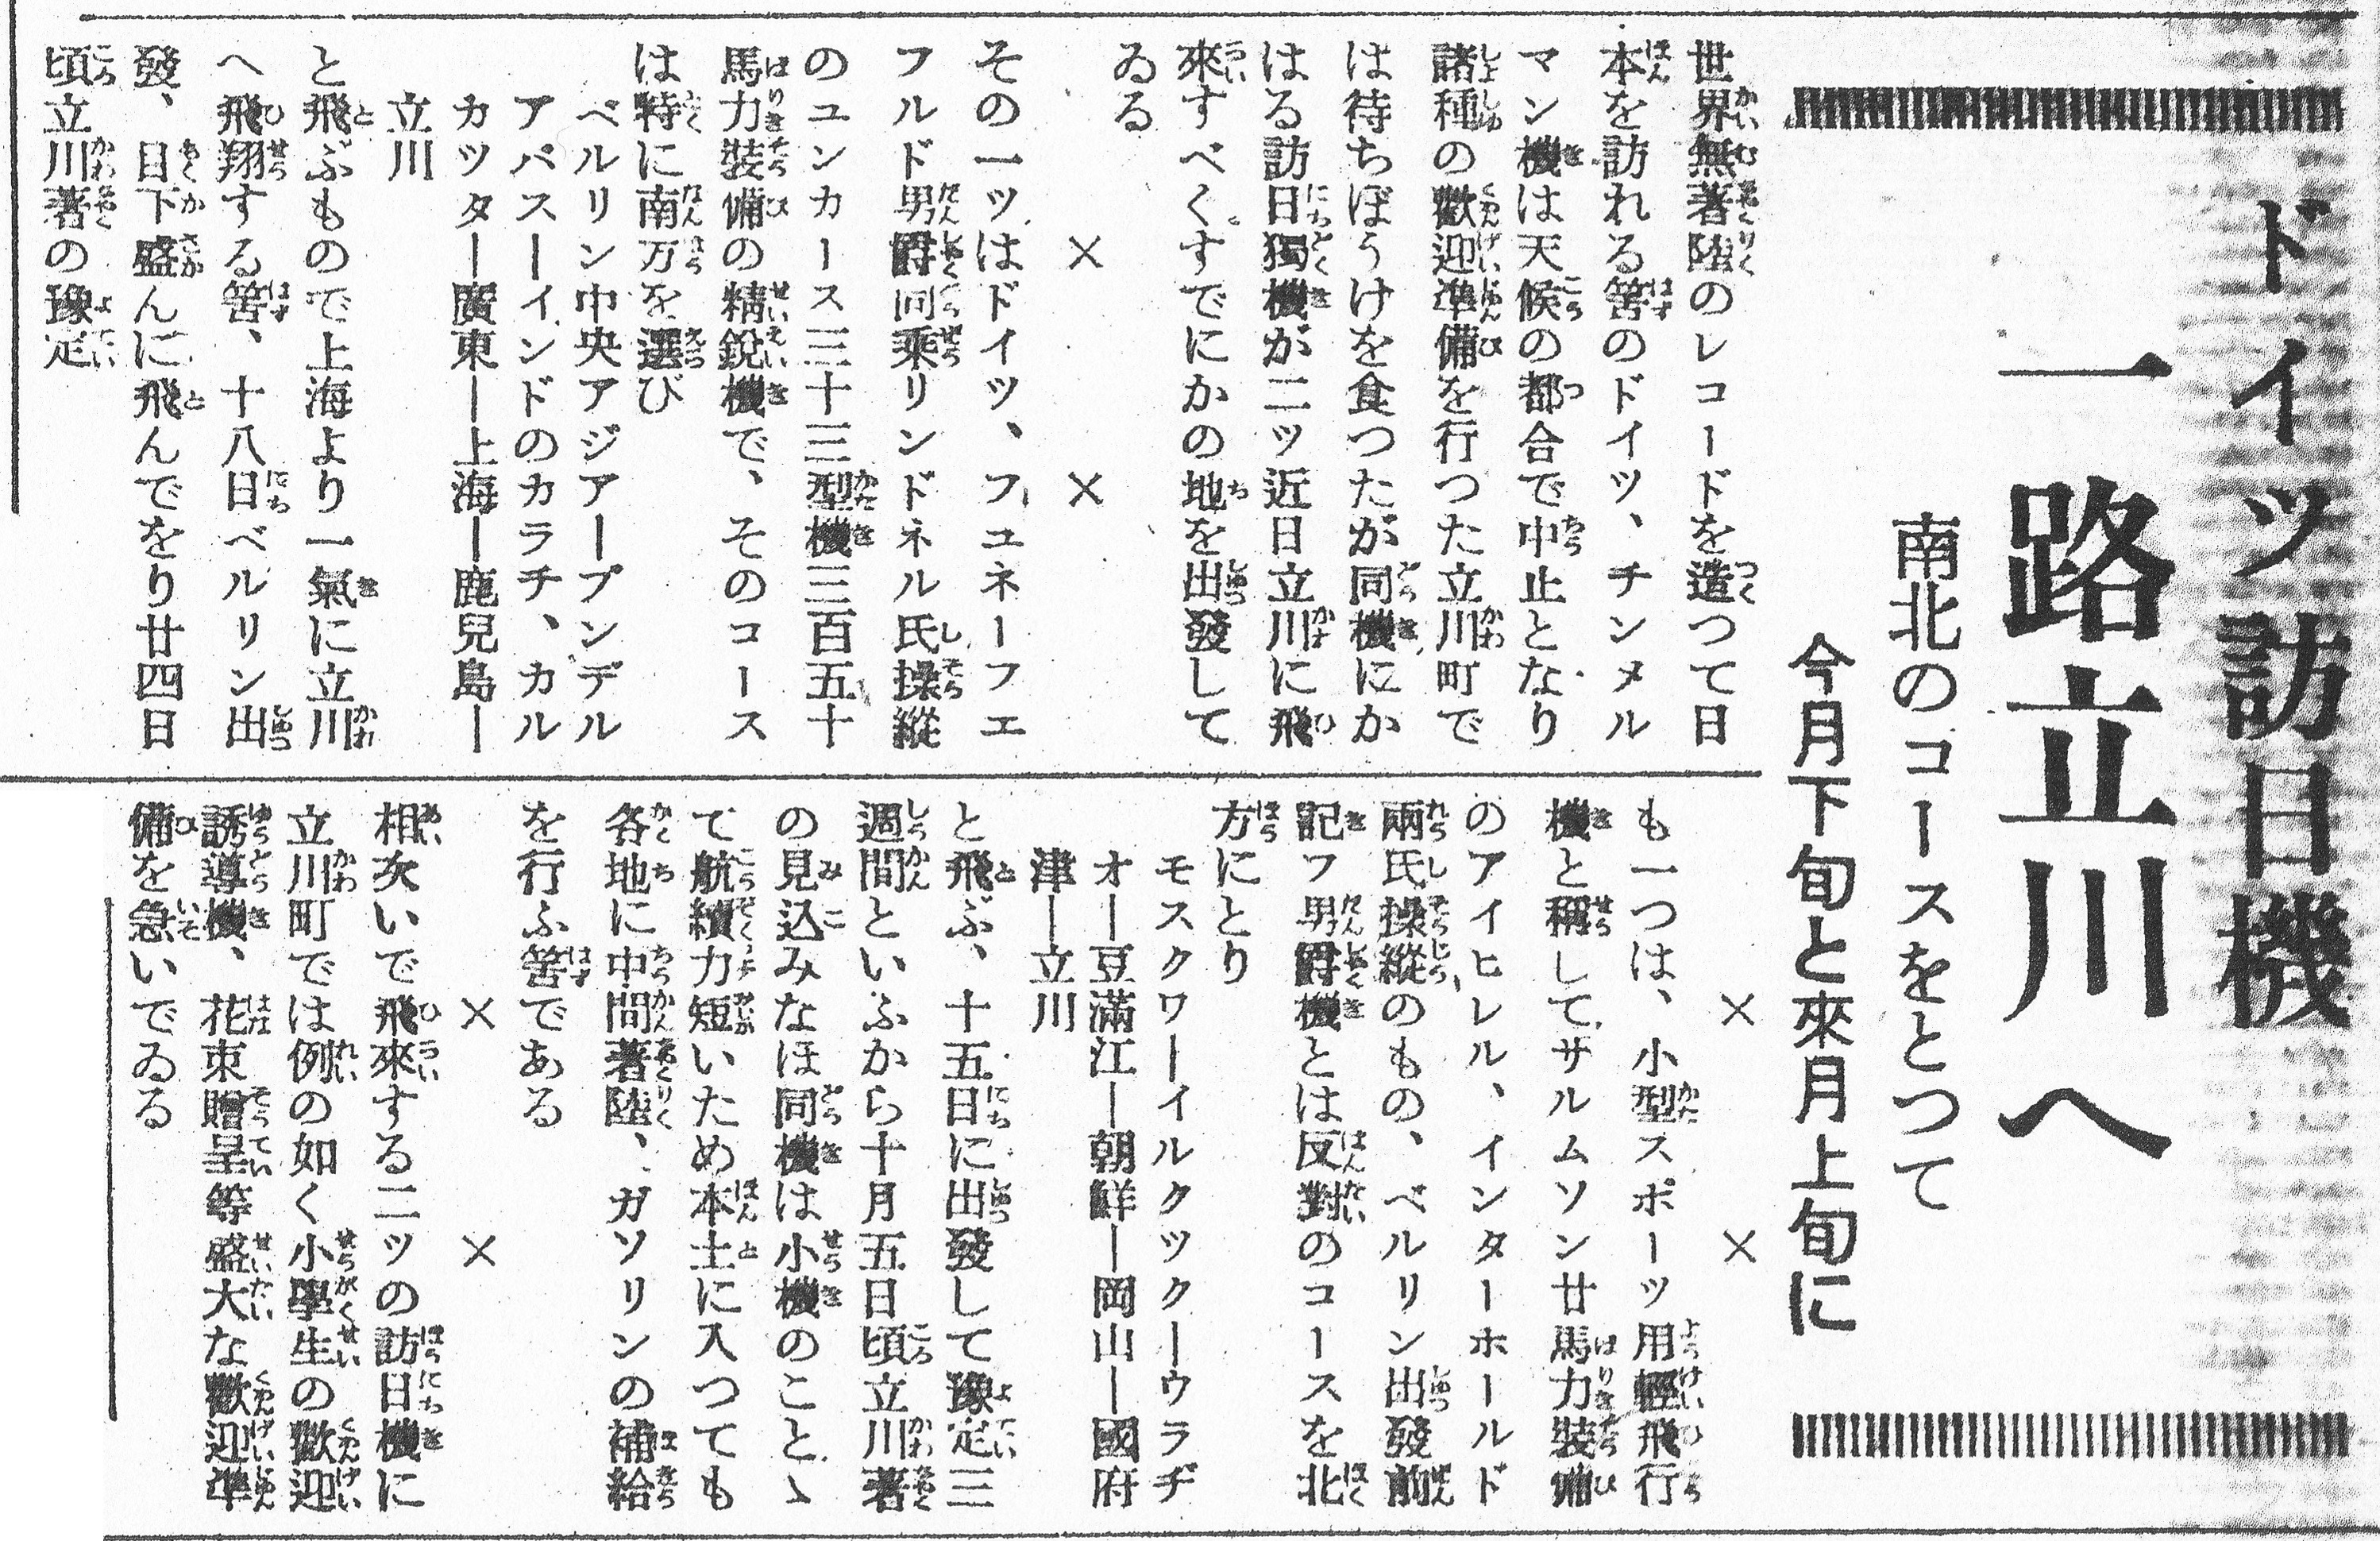 ドイツ訪日機
一路立川へ
南北のコースをとつて
今月下旬と來月上旬に
世界無著陸のレコードを造つて日
本を訪れる筈のドイツ、チンメル
マン機は天候の都合で中止となり
諸種の歡迎準備を行つた立川町で
は待ちぼうけを食つたが同機にか
はる訪日獨機が二ツ近日立川に飛
來すべくすでにかの地を出發して
ゐる
× ×
その一ツはドイツ、フユネーフエ
フルド男爵同乘リンドネル氏操縱
のユンカース三十三型機三百五十
馬力裝備の精銳機で、そのコース
は特に南方を選び
ベルリン中央アジアープンデル
アパスーインドのカラチ、カル
カツター廣東ー上海ー鹿兒島ー
立川
と飛ぶもので上海より一氣に立川
へ飛翔する筈、十八日ベルリン出
發、目下盛んに飛んでをり廿四日
頃立川著の豫定
× ×
も一つは、小型スポーツ用輕飛行
機と稱してサルムソン廿馬力裝備
のアイヒレル、インターホールド
兩氏操縱のもの、ベルリン出發前
記フ男爵機とは反對のコースを北
方にとり
モスクワーイルクツクーウラヂ
オー豆滿江ー朝鮮ー岡山ー國府
津ー立川
と飛ぶ、十五日に出發して豫定三
週間といふから十月五日頃立川著
の見込みなほ同機は小機のことゝ
て航續力短いため本土に入つても
各地に中間著陸、ガソリンの補給
を行ふ筈である
× ×
相次いで飛來する二ツの訪日機に
立川町では例の如く小學生の歡迎
誘導機、花束贈呈等盛大な歡迎準
備を急いでゐる